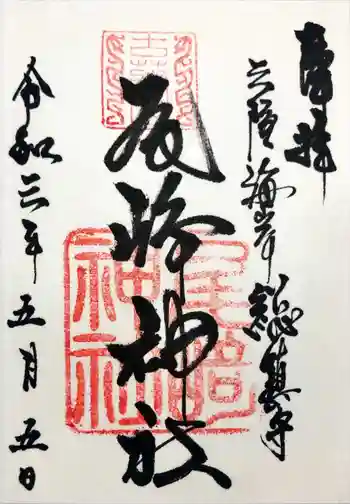 奉拝
三陸海岸
総鎮守
尾崎神社
尾崎
神社
令和三年五月五日